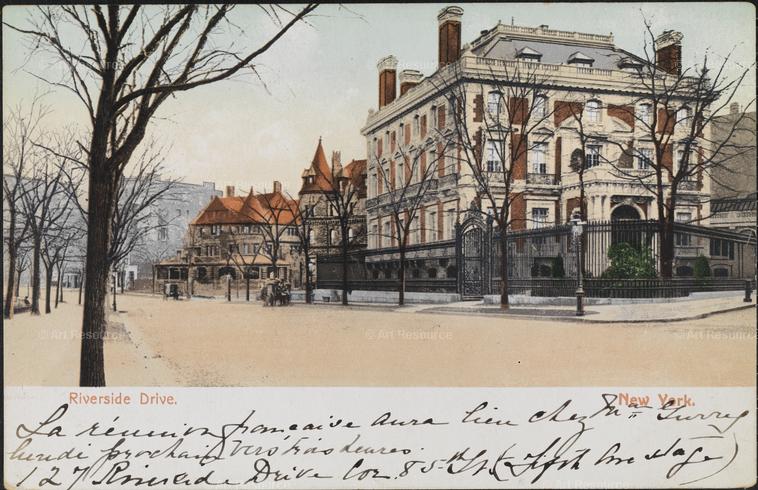 Riverside Drive. New York.
La réunion française aura lieu chez Mme Gurrey
lundi prochain vers trois heures.
127 Riverside Drive Cor. 85th St. (Fifth Ave stage)
© Art Resource © Art Resource © Art Resource